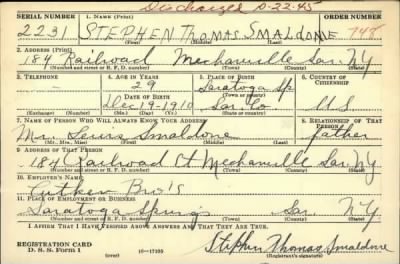 Discharged 10-22-45
SERIAL NUMBER 1. NAME (Print) ORDER NUMBER
2231 STEPHEN Thomas SMALDONE 748
(First) (Middle) (Last)
2. ADDRESS (Print)
184 Railroad Mechanville Sar. NY
(Number and street or R. F. D. number) (Town) (County) (State)
3. TELEPHONE 4. AGE IN YEARS 5. PLACE OF BIRTH 6. COUNTRY OF CITIZENSHIP
29 Saratoga Sp
(Town or county)
DATE OF BIRTH
Dec 19-1910 Sar. Co U S
(Exchange) (No.) (Mo.) (Day) (Yr.) (State or country)
7. NAME OF PERSON WHO WILL ALWAYS KNOW YOUR ADDRESS 8. RELATIONSHIP OF THAT PERSON
Mr. Lewis Smaldone father
(Mr., Mrs., Miss) (First) (Middle) (Last)
9. ADDRESS OF THAT PERSON
184 Railroad St. Mechanville Sar. NY
(Number and street or R. F. D. number) (Town) (County) (State)
10. EMPLOYER'S NAME
Bro's
11. PLACE OF EMPLOYMENT OR BUSINESS
Saratoga Springs Sar. NY
(Number and street or R. F. D. number) (Town) (County) (State)
I AFFIRM THAT I HAVE VERIFIED ABOVE ANSWERS AND THAT THEY ARE TRUE.
REGISTRATION CARD
D. S. S. Form 1 (over) 16—17105
Stephen Thomas Smaldone
(Registrant's signature)